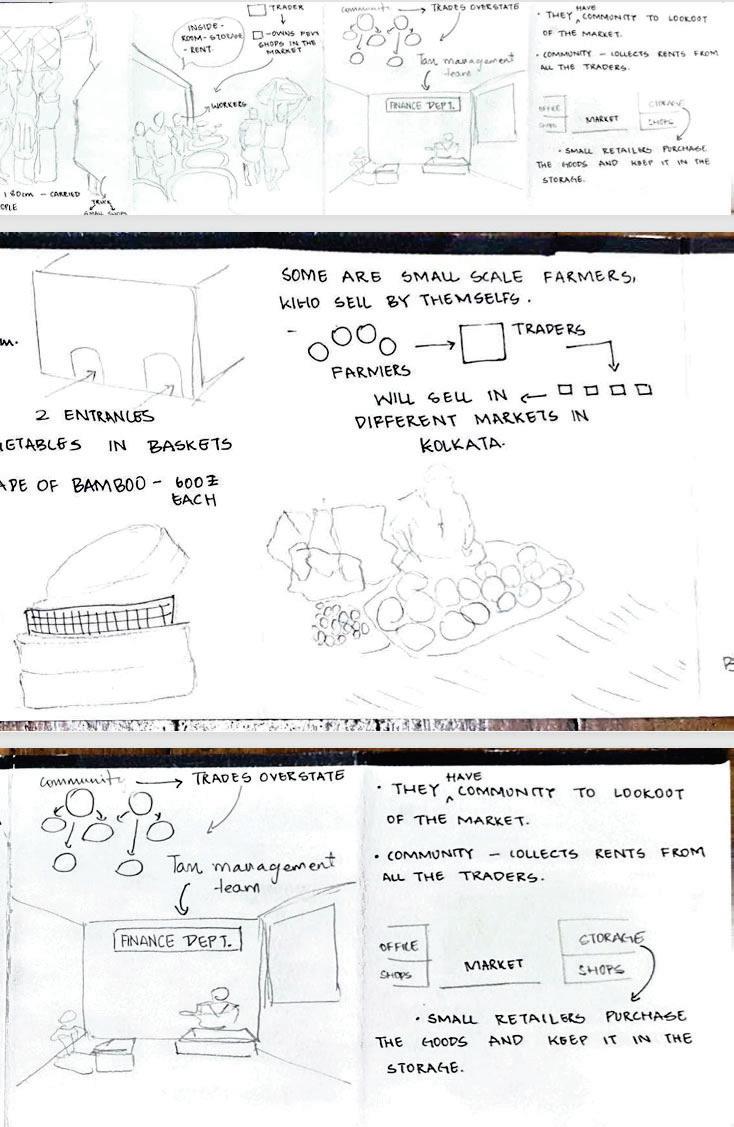 INSIDE-
ROOM-STORAGE
- RENT.
TRADER
- OWNS FEW
SHOPS IN THE
MARKET
WORKERS
180cm - CARRIED
TRUCK
SMALL SHOPS
community → TRADES OVERSTATE
Tax management
team
FINANCE DEPT.
• THEY HAVE COMMUNITY TO LOOKOOT
OF THE MARKET.
• COMMUNITY - COLLECTS RENTS FROM
ALL THE TRADERS.
OFFICE
SHOPS
MARKET
STORAGE
SHOPS
• SMALL RETAILERS PURCHASE
THE GOODS AND KEEP IT IN THE
STORAGE.
2 ENTRANCES
ETABLES IN BASKETS
ADE OF BAMBOO - 600₹
EACH
SOME ARE SMALL SCALE FARMERS,
WHO SELL BY THEMSELFS.
FARMERS
→
TRADERS
WILL SELL IN ←
DIFFERENT MARKETS IN
KOLKATA.
community → TRADES OVERSTATE
Tax management
team
FINANCE DEPT.
• THEY HAVE COMMUNITY TO LOOKOOT
OF THE MARKET.
• COMMUNITY - COLLECTS RENTS FROM
ALL THE TRADERS.
OFFICE
SHOPS
MARKET
STORAGE
SHOPS
• SMALL RETAILERS PURCHASE
THE GOODS AND KEEP IT IN THE
STORAGE.